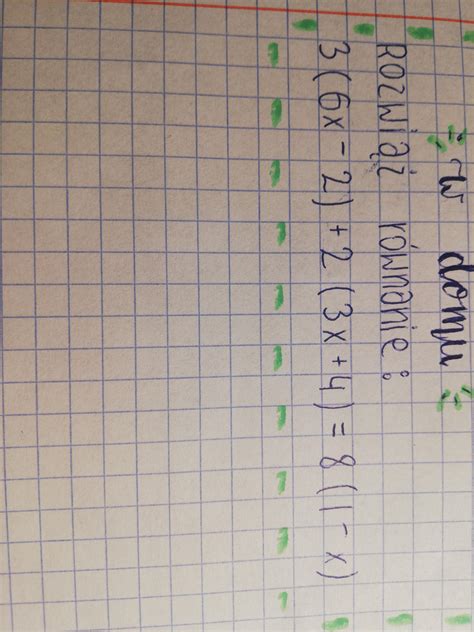 w domu
Rozwiąż równanie:
3(6x - 2) + 2(3x + 4) = 8(1 - x)